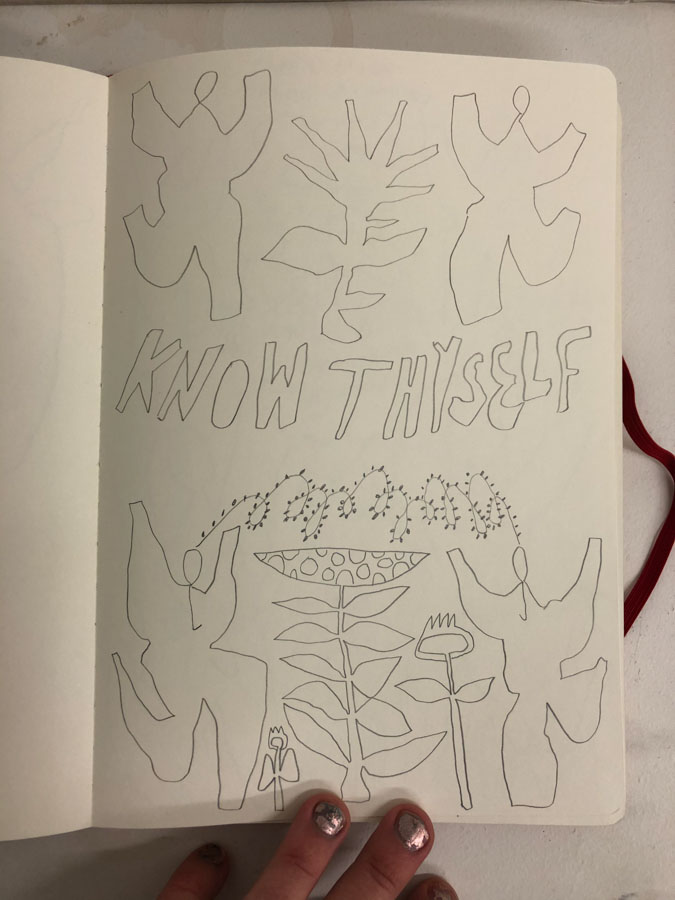 KNOW THYSELF